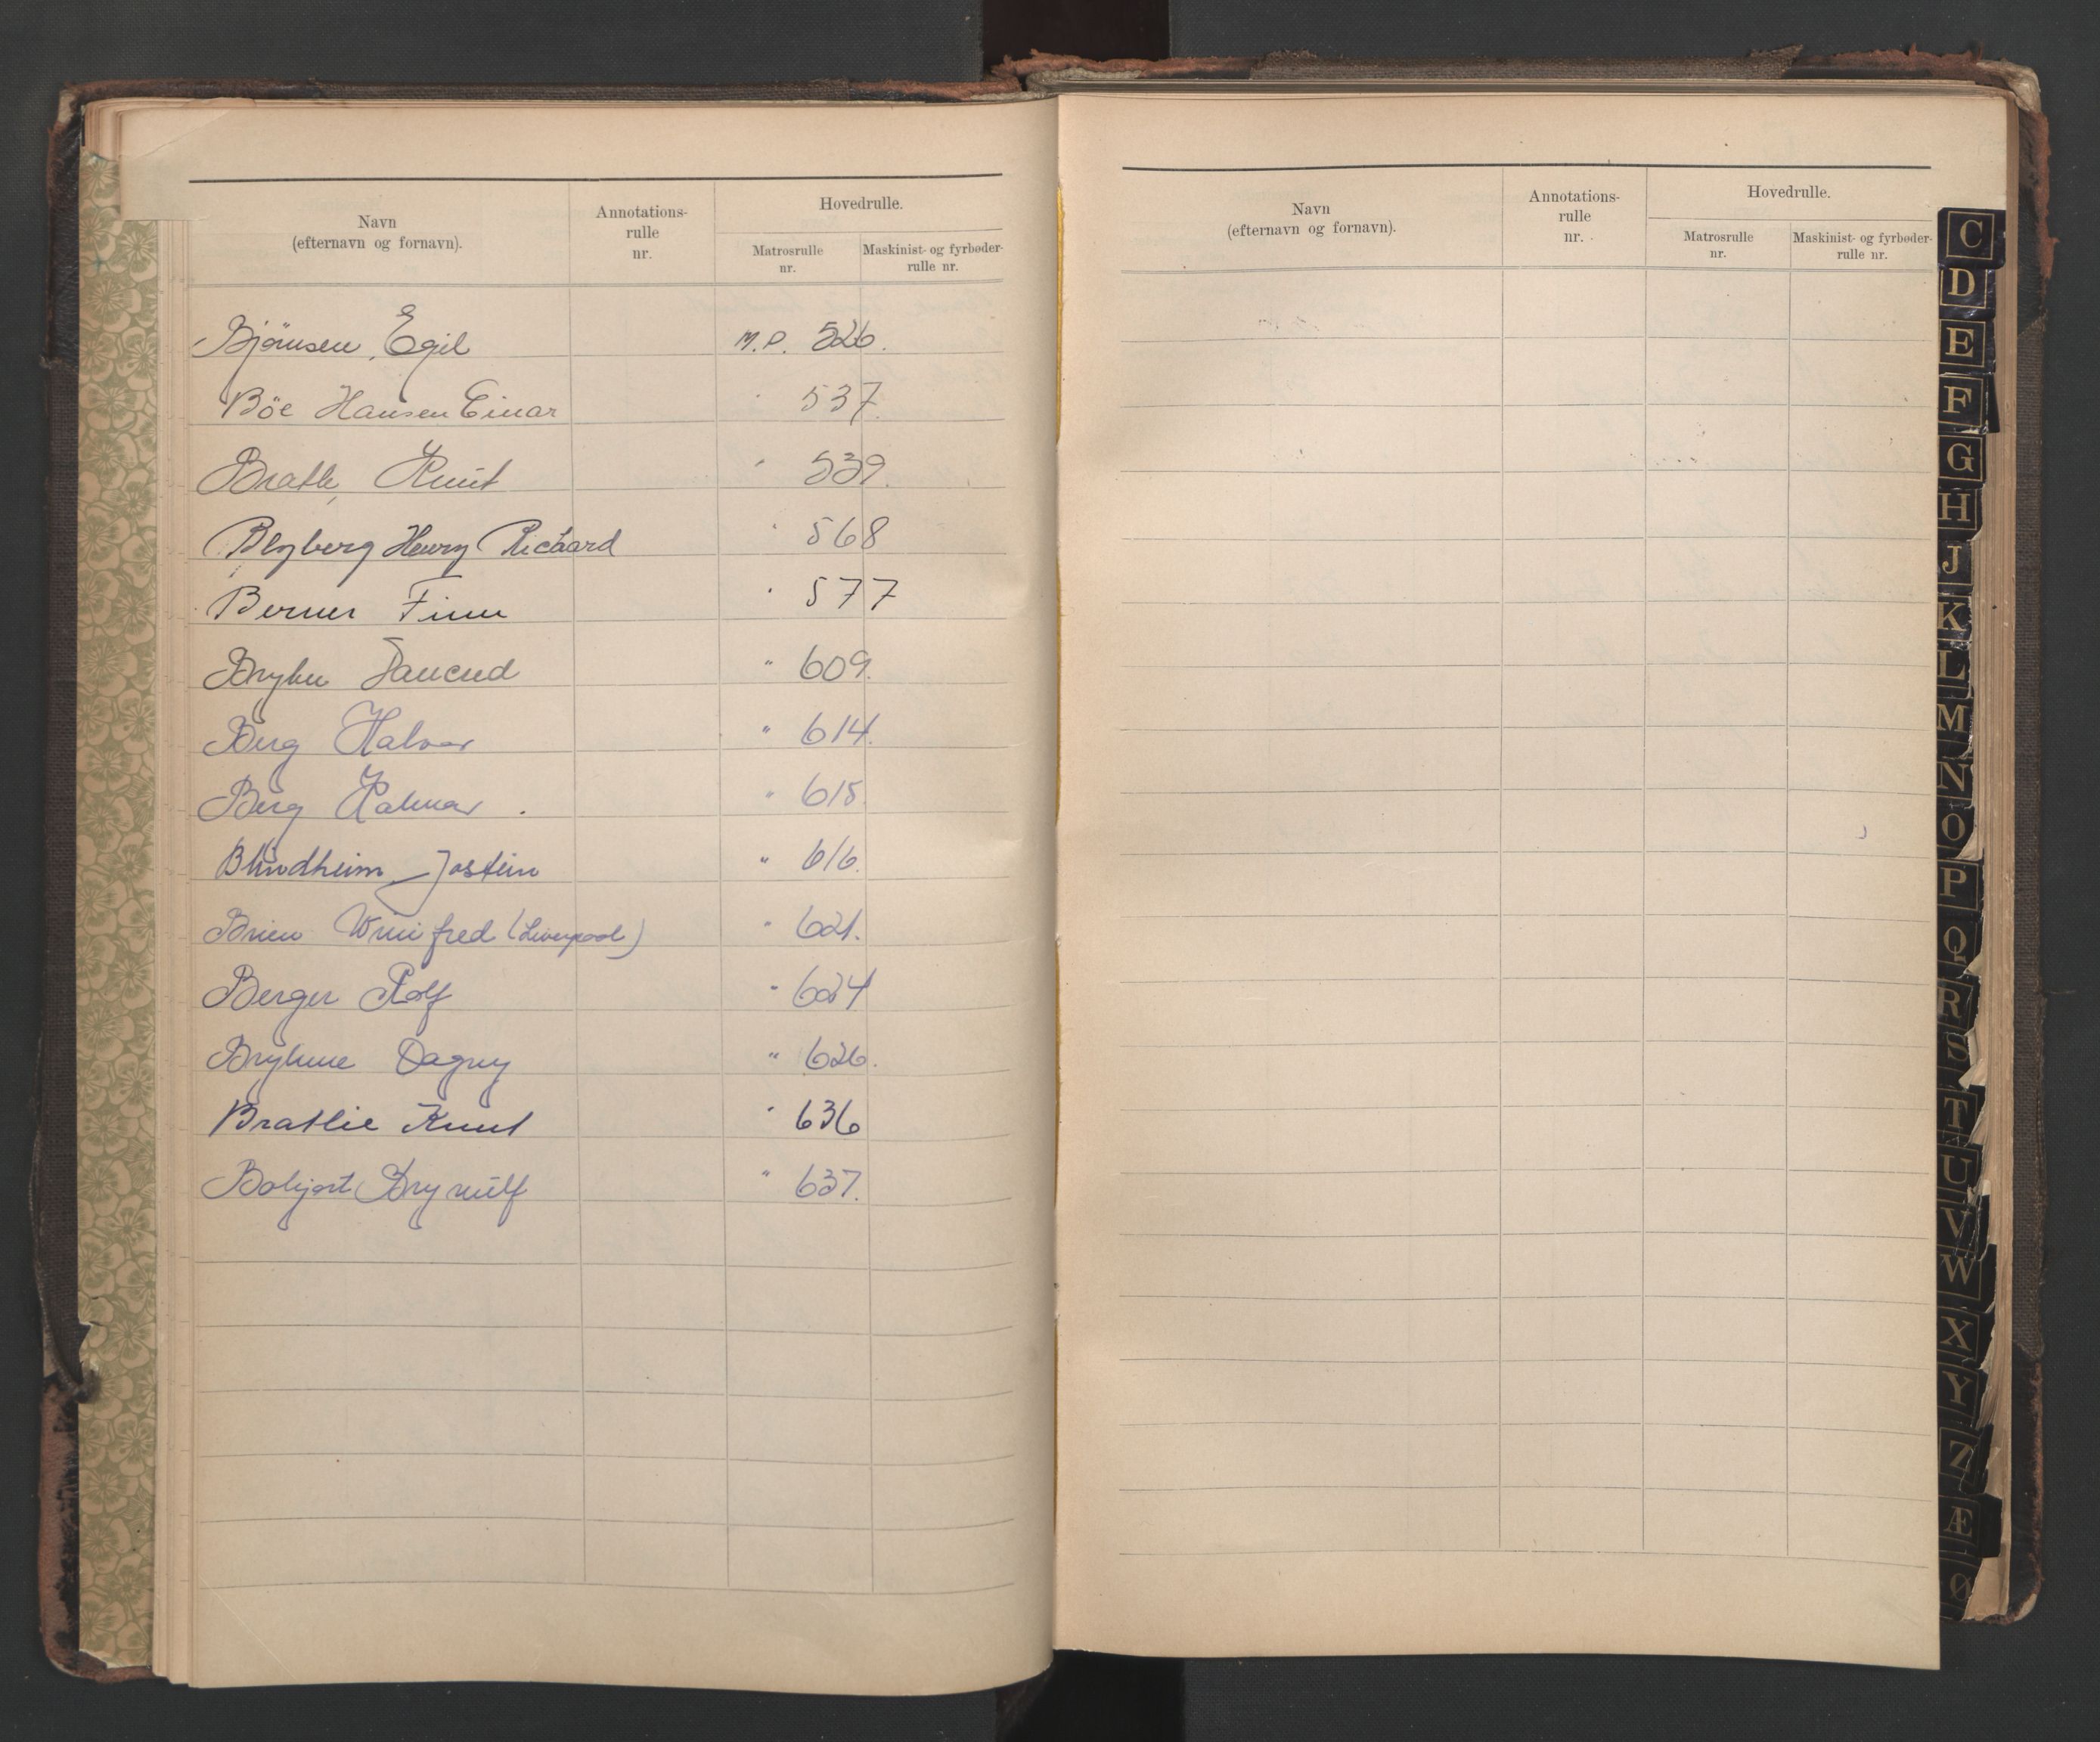 Navn
(efternavn og fornavn).
Annotations-
rulle
nr.
Hovedrulle.
Matrosrulle
nr.
Maskinist- og fyrbøder-
rulle nr.
Bjørnsen, Egil M.P. 526.
Böe Hansen Einar " 537.
Bratli, Knut " 539.
Blyberg Henry Richard " 568
Berner Finn " 577
Bryhn " 609.
Berg Halvor " 614.
Berg Halmar " 615.
Blindheim Jostein " 616.
Brien Winifred (Liverpool) " 621.
Berger Rolf " 624
Bryhnne Dagny " 626.
Bratlie Knut " 636
Brynulf " 637.
Navn
(efternavn og fornavn).
Annotations-
rulle
nr.
Hovedrulle.
Matrosrulle
nr.
Maskinist- og fyrbøder-
rulle nr.
C
D
E
F
G
H
J
K
L
M
N
O
P
Q
R
S
T
U
V
W
X
Y
Z
Æ
Ø